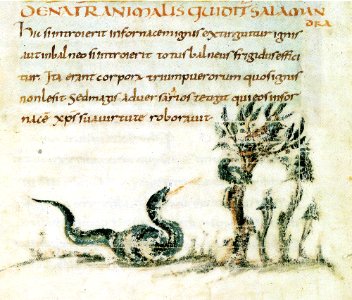 DE NATR ANIMALIS QUI DIT SALAMAN
DRA
Hic si introierit in fornacem ignis extinguitur ignis
aut in balneo si introierit totus balneus frigidus effici
tur. Ita erant corpora trium puerorum quos ignis
non lesit sed magis adversarios tetigit qui eos in for
nace xps sua virtute roboravit